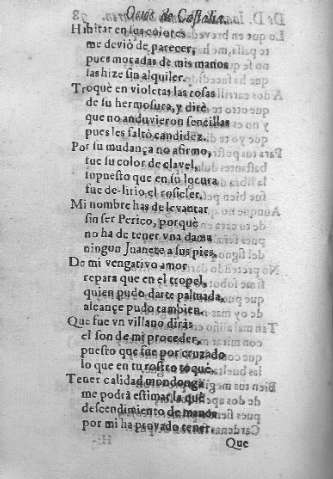 Ocios de Castalia.
Habitar en sus colores
me deviò de parecer,
pues moradas de mis manos
las hize sin alquiler.
Troquè en violetas las rosas
de su hermosura, y dirè
que no anduvieron sencillas
pues les faltò candidez.
Por su mudança no afirmo,
fue su color de clavel,
supuesto que en su locura
fue de-lirio el rosicler.
Mi nombre has de levantar
sin ser Perico, porquè
no ha de tener vna dama
ningun Juanete a sus pies.
De mi vengativo amor
repara que en el tropel,
quien pudo darte palmada,
alcançe pudo tambien.
Que fue vn villano diràs
el son de mi proceder,
puesto que fue por cruzado
lo que en tu rostro toquè.
Tener calidad mondonga
me podrà estimar la què
descendimiento de manos
por mi ha provado tener.
Que